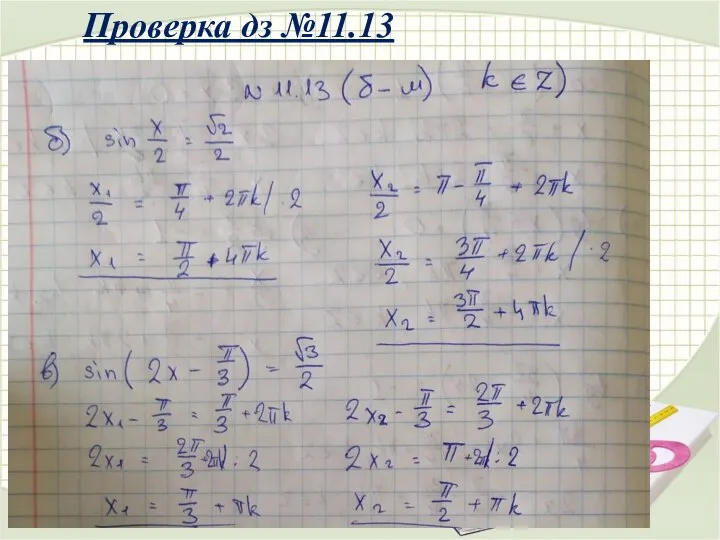 Проверка дз №11.13
№ 11.13 (б-м) k ∈ Z)
б) sin x/2 = √2/2
x₁/2 = π/4 + 2πk / · 2
x₁ = π/2 + 4πk
x₂/2 = π - π/4 + 2πk
x₂/2 = 3π/4 + 2πk / · 2
x₂ = 3π/2 + 4πk
в) sin( 2x - π/3 ) = √3/2
2x₁ - π/3 = π/3 + 2πk
2x₁ = 2π/3 + 2πk / : 2
x₁ = π/3 + πk
2x₂ - π/3 = 2π/3 + 2πk
2x₂ = π + 2πk / : 2
x₂ = π/2 + πk